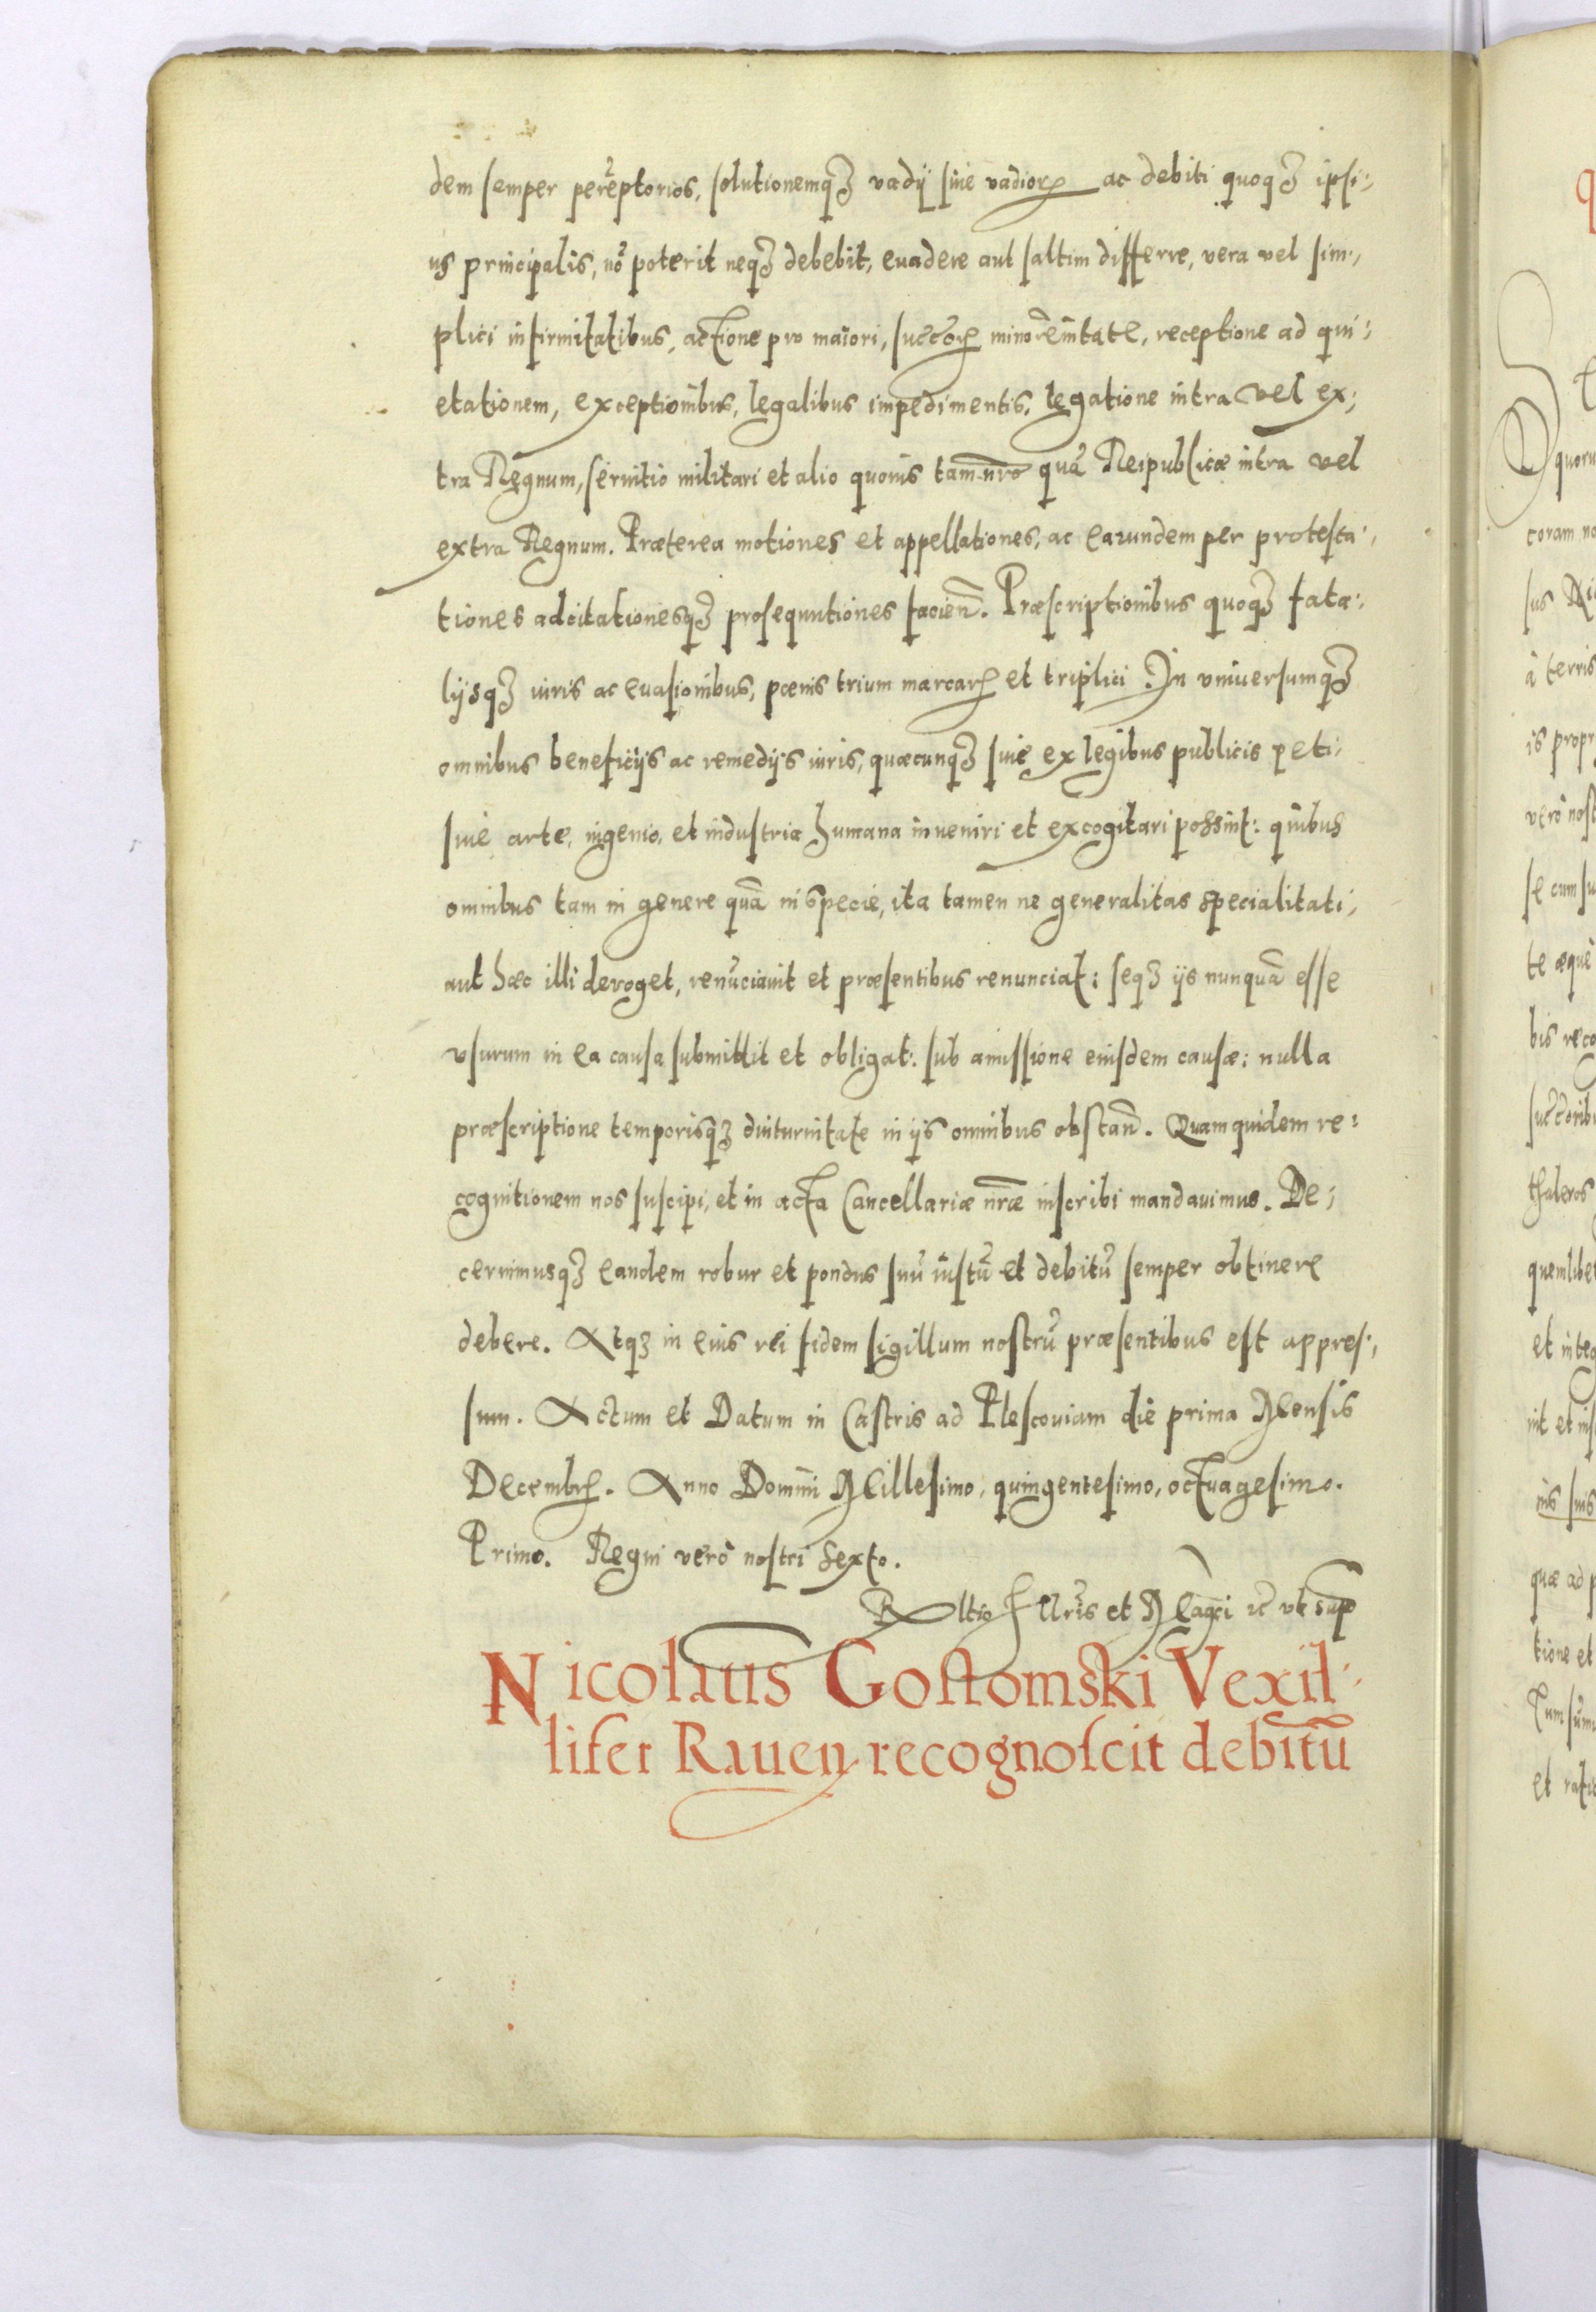 dem semper perẽptorios, solutionemqꝫ vadij siue vadioꝝ ac debiti quoqꝫ ipsi-
us principalis, nõ poterit neqꝫ debebit, euadere aut saltim differre, vera vel sim-
plici infirmitatibus, actione pro maiori, succoꝝ minorẽnitate, receptione ad qui-
etationem, exceptionibus, legalibus impedimentis, legatione intra vel ex-
tra Regnum, seruitio militari et alio quouis tam nr̃o quã Reipublicæ intra vel
extra Regnum. Præterea motiones et appellationes, ac earundem per protesta-
tiones adcitationesqꝫ prosequutiones facien̄. Præscriptionibus quoqꝫ fata-
lijsqꝫ iuris ac euasionibus, pœnis trium marcaꝝ et triplici. In vniuersumqꝫ
omnibus beneficijs ac remedijs iuris, quæcunqꝫ siue ex legibus publicis peti-
siue arte, ingenio, et industria humana inueniri et excogitari possint: quibus
omnibus tam in genere quã in specie, ita tamen ne generalitas specialitati,
aut hæc illi deroget, renũciauit et præsentibus renunciat: seqꝫ ijs nunquã esse
vsurum in ea causa submittit et obligat: sub amissione eiusdem causæ: nulla
præscriptione temporisqꝫ diuturnitate in ijs omnibus obstan̄. Quam quidem re-
cognitionem nos suscipi, et in acta Cancellariæ nr̃æ inscribi mandauimus. De-
cernimusqꝫ eandem robur et pondus suũ iustũ et debitũ semper obtinere
debere. Atqꝫ in eius rei fidem sigillum nostrũ præsentibus est appres-
sum. Actum et Datum in Castris ad Plescouiam die prima Mensis
Decembꝝ. Anno Domini Millesimo, quingentesimo, octuagesimo.
Primo. Regni verò nostri sexto.
Rltio Illris et Magci ꝛc vt sup
Nicolaus Gostomski Vexil-
lifer Rauen recognoscit debitũ